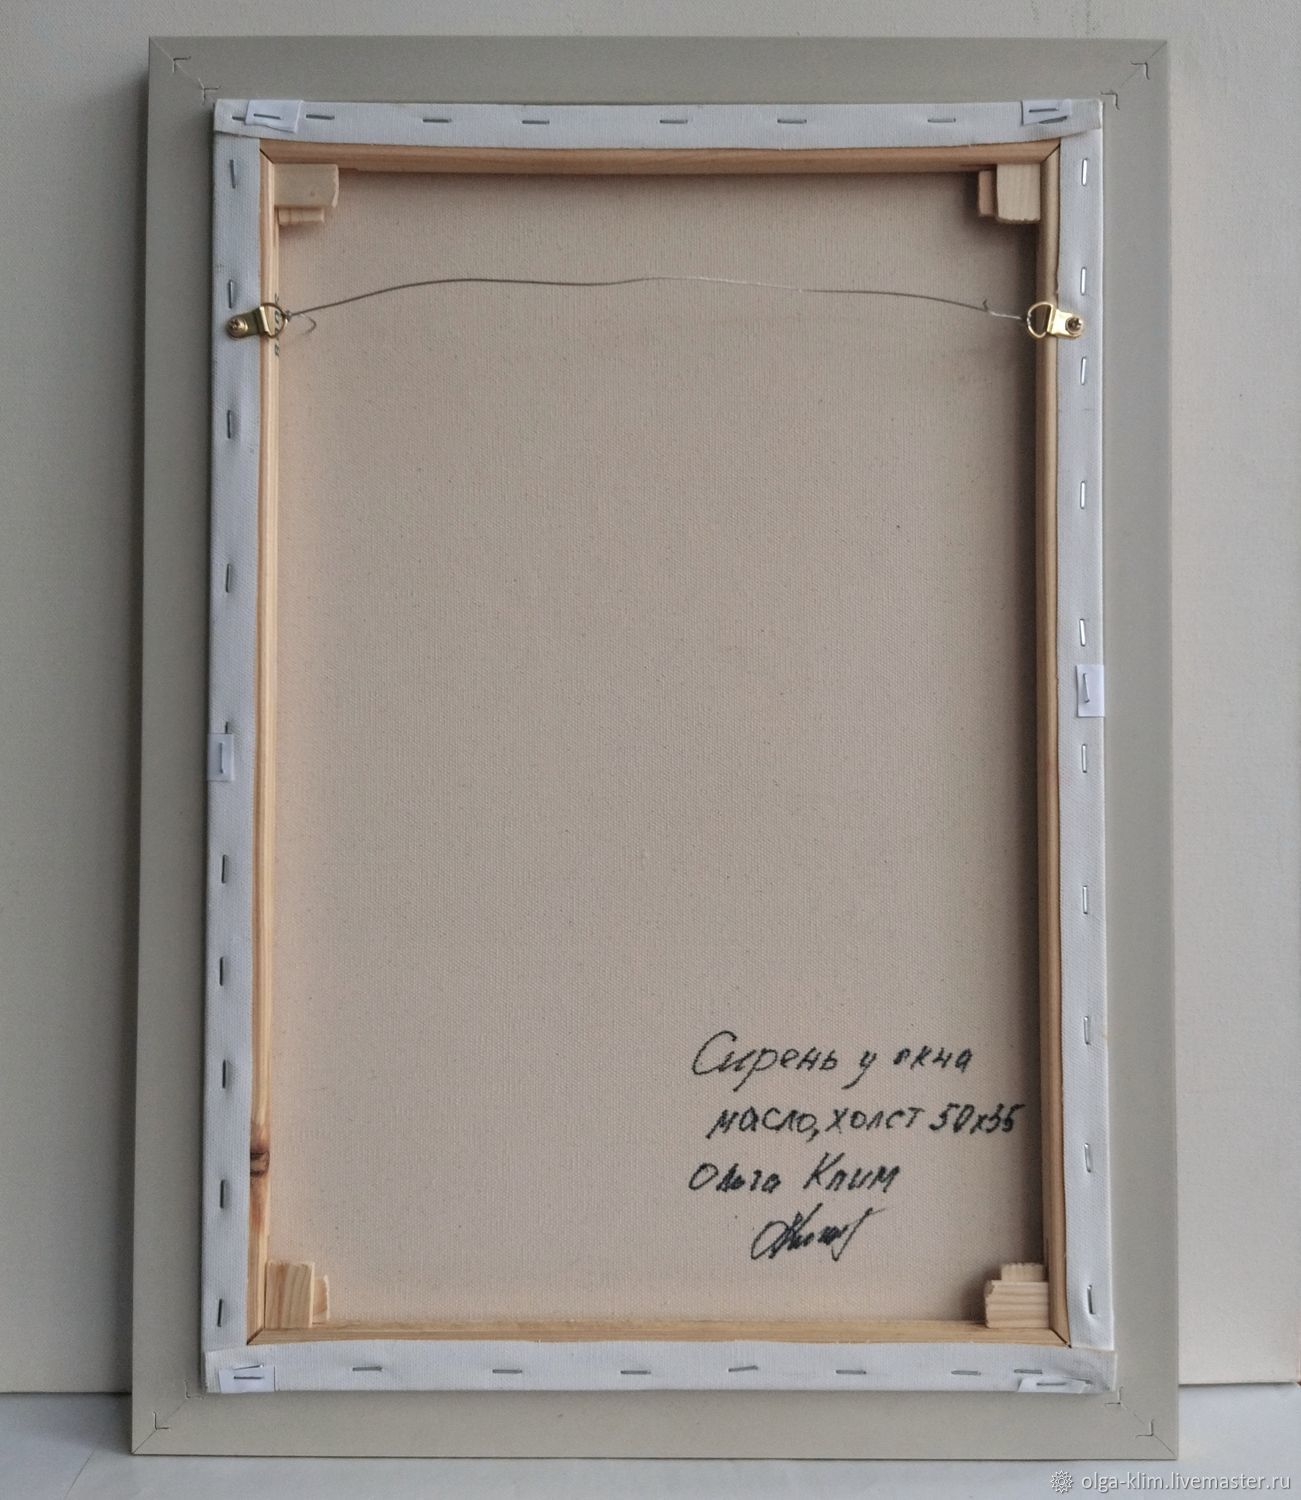 Сирень у окна
масло, холст 50х35
Ольга Клим
olga-klim.livemaster.ru